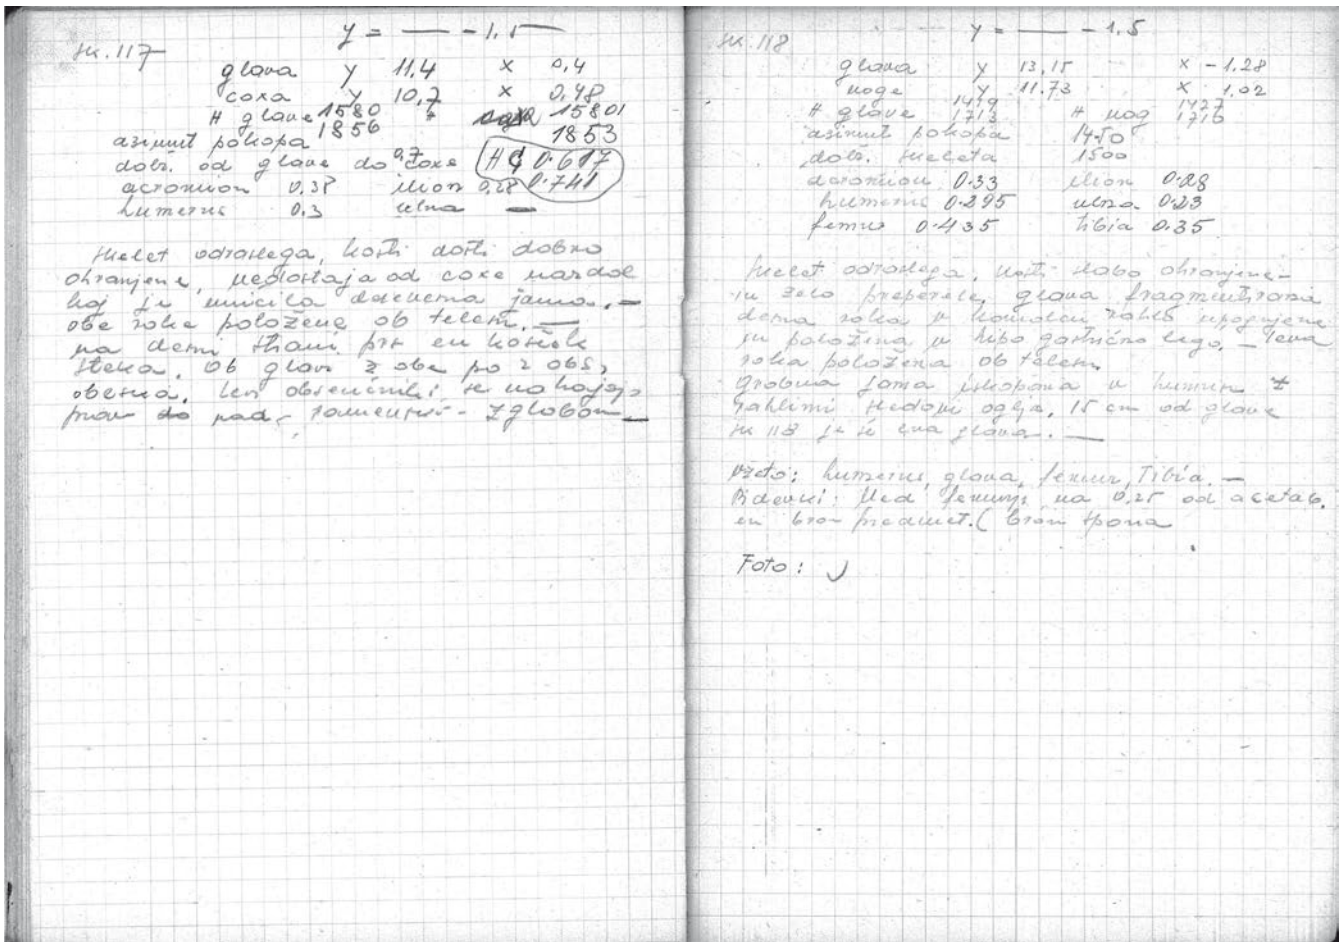 sk. 117
y = — - 1.5
glava y 11.4 x 0,4
coxa y 10,7 x 0,48
H glave 1580 15801
1856 1853
azimut pokopa
dolž. od glave do coxe 0,7 H₵ 0.617
0.741
acromion 0.38 ilion 0,28
humerus 0.3 ulna —
skelet odraslega, kosti dosti dobro
ohranjene, nedostaja od coxe navzdol
kaj je uničila jama. —
obe roke položene ob telesu. —
na desni strani prs en košček
stekla. Ob glavi z obe po 2 obs.
obeska.
prav nad - zglobom —
sk. 118
y = — - 1.5
glava y 13,15 x - 1.28
noge y 11.73 x 1,02
1479 1427
H glave 1713 H nog 1716
azimut pokopa 1450
dolž. skeleta 1500
acromion 0.33 ilion 0.28
humerus 0.295 ulna 0.23
femur 0.435 tibia 0.35
skelet odraslega, kosti slabo ohranjene
in zelo preperele, glava fragmentirana
desna roka v komolcu rahlo upognjena
in položena v hipogastrično lego, — leva
roka položena ob telesu
grobna jama iskopana v humus z
rahlimi sledovi oglja, 15 cm od glave
sk 118 je še ena glava. —
vzeto: humerus, glava, femur, Tibia. —
Pridevki: Med femurji na 0.25 od acetab.
en bron predmet. ( bron spona
Foto: ✓